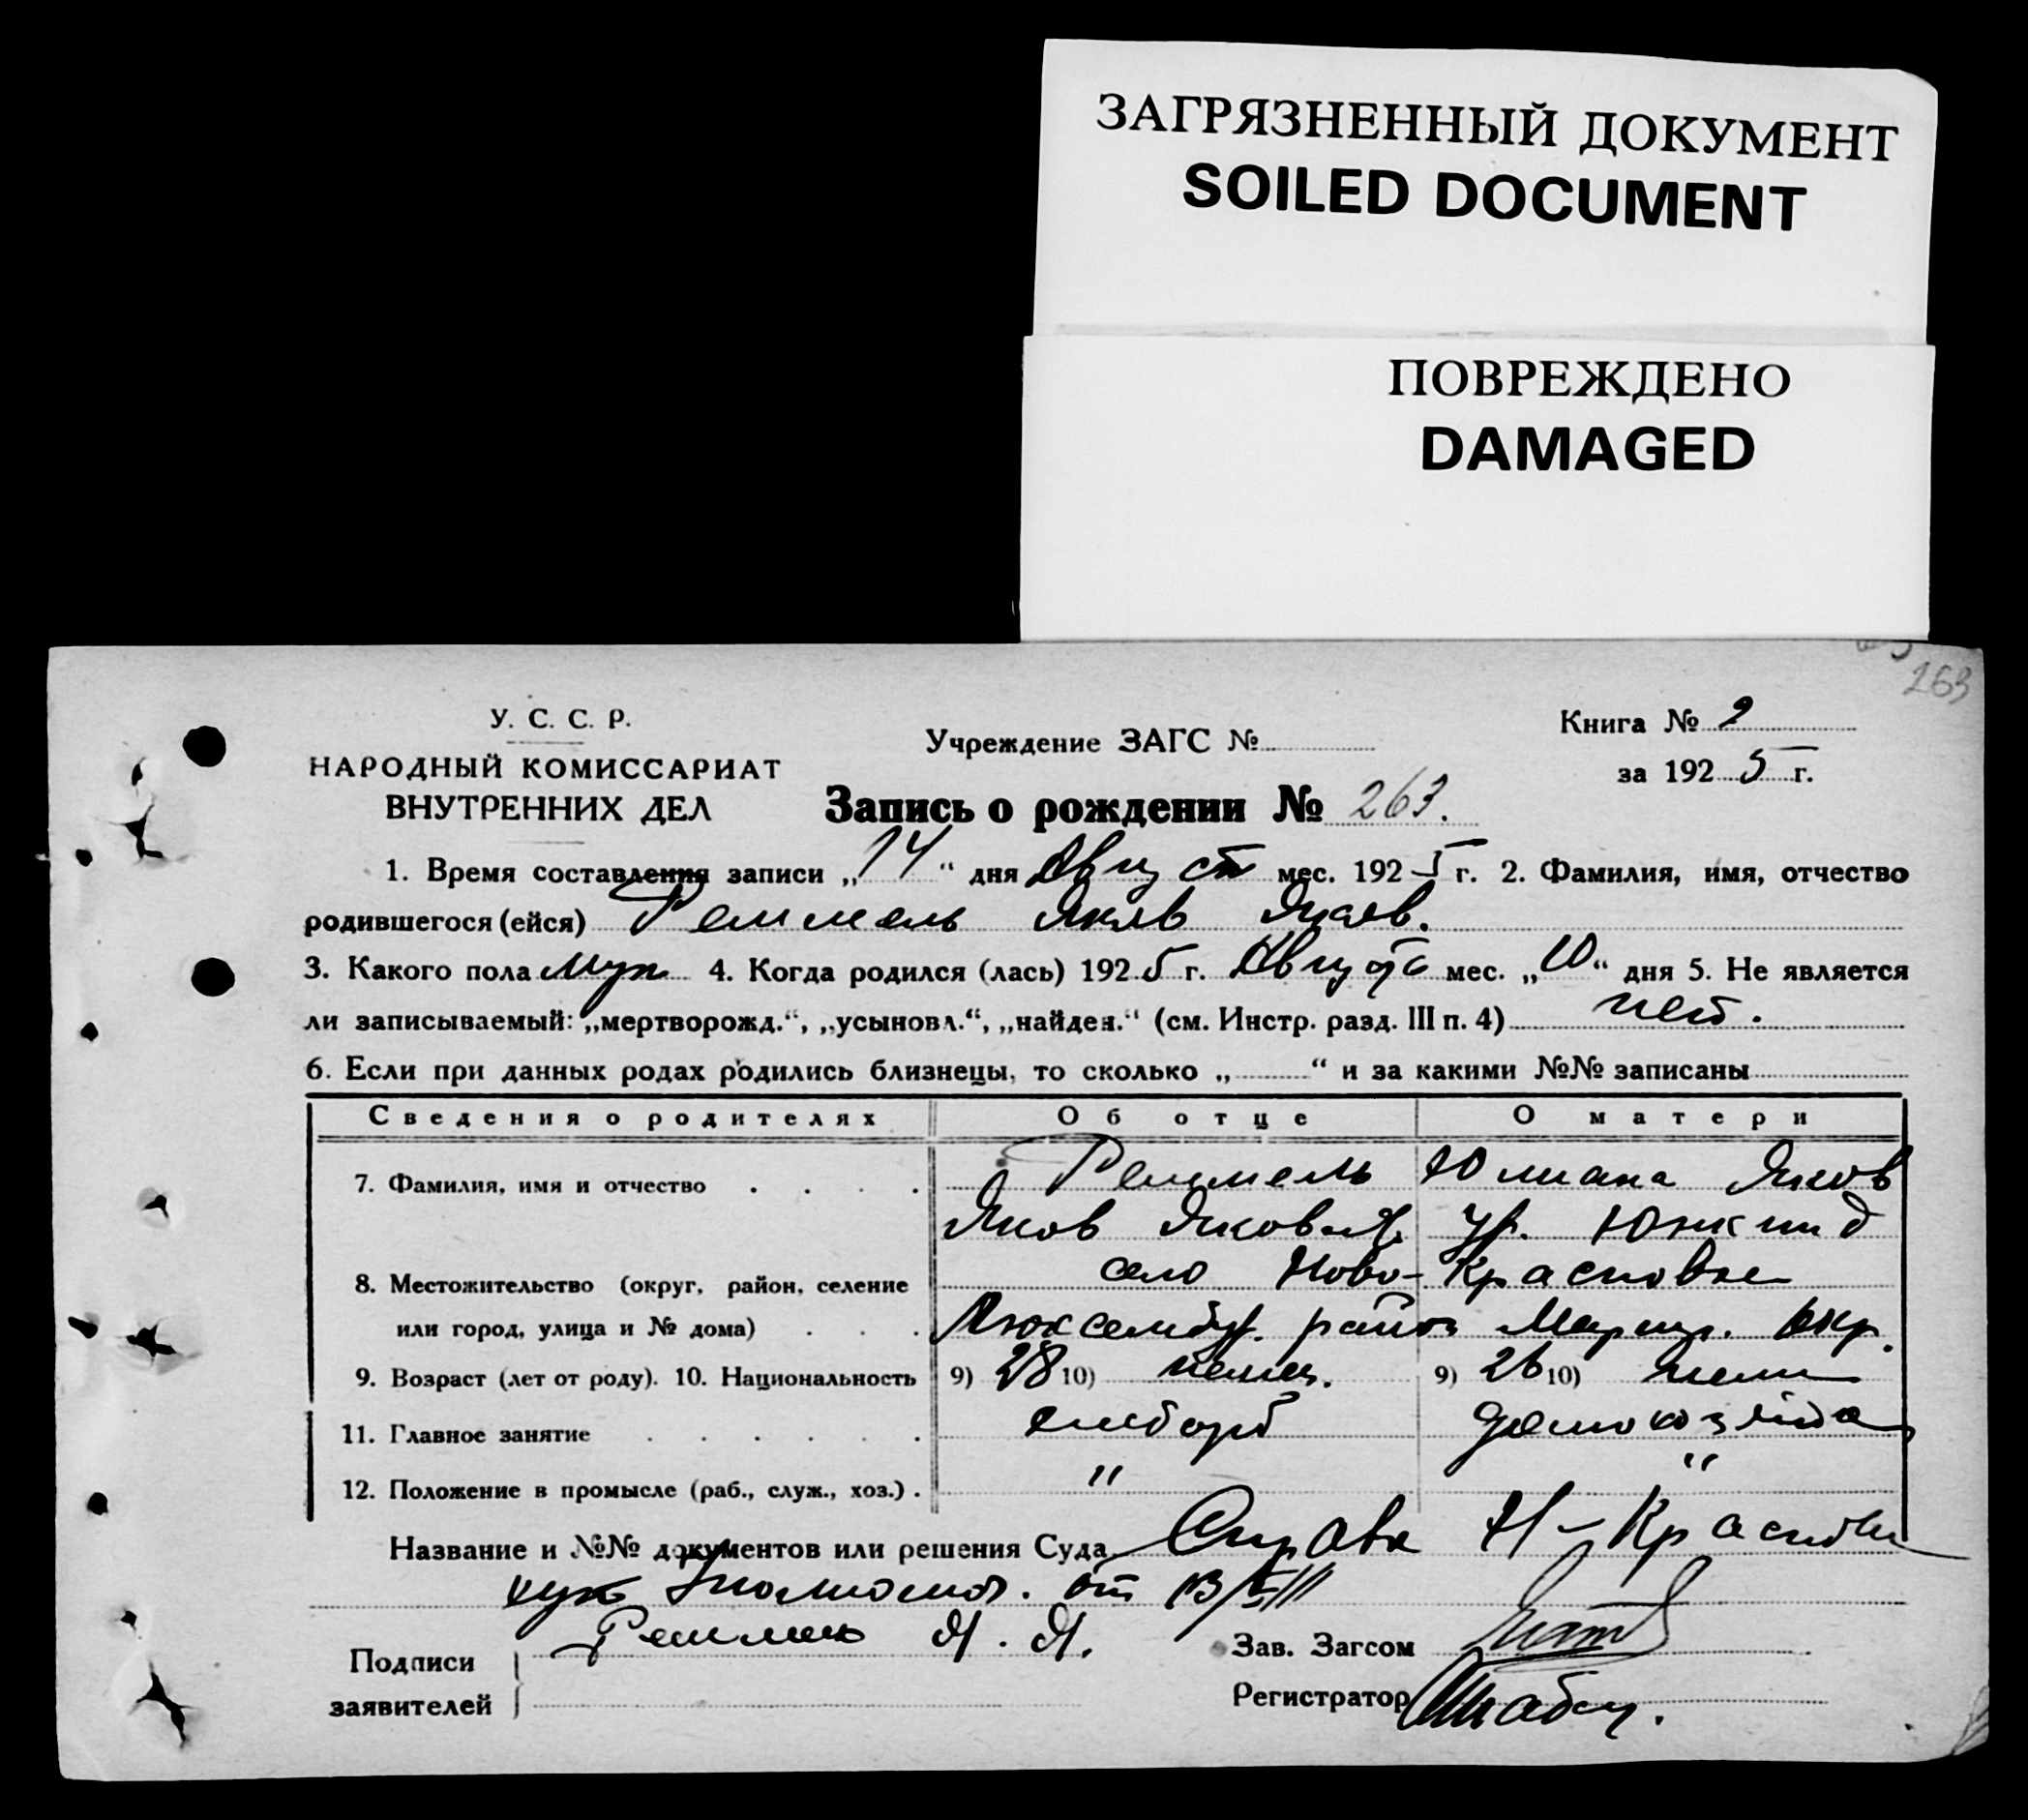 ЗАГРЯЗНЕННЫЙ ДОКУМЕНТ
SOILED DOCUMENT
ПОВРЕЖДЕНО
DAMAGED
263
У. С. С. Р.
НАРОДНЫЙ КОМИССАРИАТ
ВНУТРЕННИХ ДЕЛ
Учреждение ЗАГС №
Книга № 2
за 1925 г.
Запись о рождении № 263.
1. Время составления записи „14“ дня Август мес. 1925 г. 2. Фамилия, имя, отчество
родившегося (ейся) Реммель Яков Яков.
3. Какого пола муж 4. Когда родился (лась) 1925 г. Августа мес. „10“ дня 5. Не является
ли записываемый: „мертворожд.“, „усыновл.“, „найден.“ (см. Инстр. разд. III п. 4) нет.
6. Если при данных родах родились близнецы, то сколько „ “ и за какими №№ записаны
Сведения о родителях Об отце О матери
7. Фамилия, имя и отчество Реммель Юлиана Яков
Яков Яковл. ур. Юнкинд
8. Местожительство (округ, район, селение село Ново-Красновка
или город, улица и № дома) Люксембур. район Мариуп. окр.
9. Возраст (лет от роду). 10. Национальность 9) 28 10) немец. 9) 26 10) немк
11. Главное занятие хлебороб домохозяйка
12. Положение в промысле (раб., служ., хоз.) . " "
Название и №№ документов или решения Суда Справк Н-Красновк
от 13/VIII
Подписи
заявителей
Реммель Я. Я.
Зав. Загсом
Регистратор